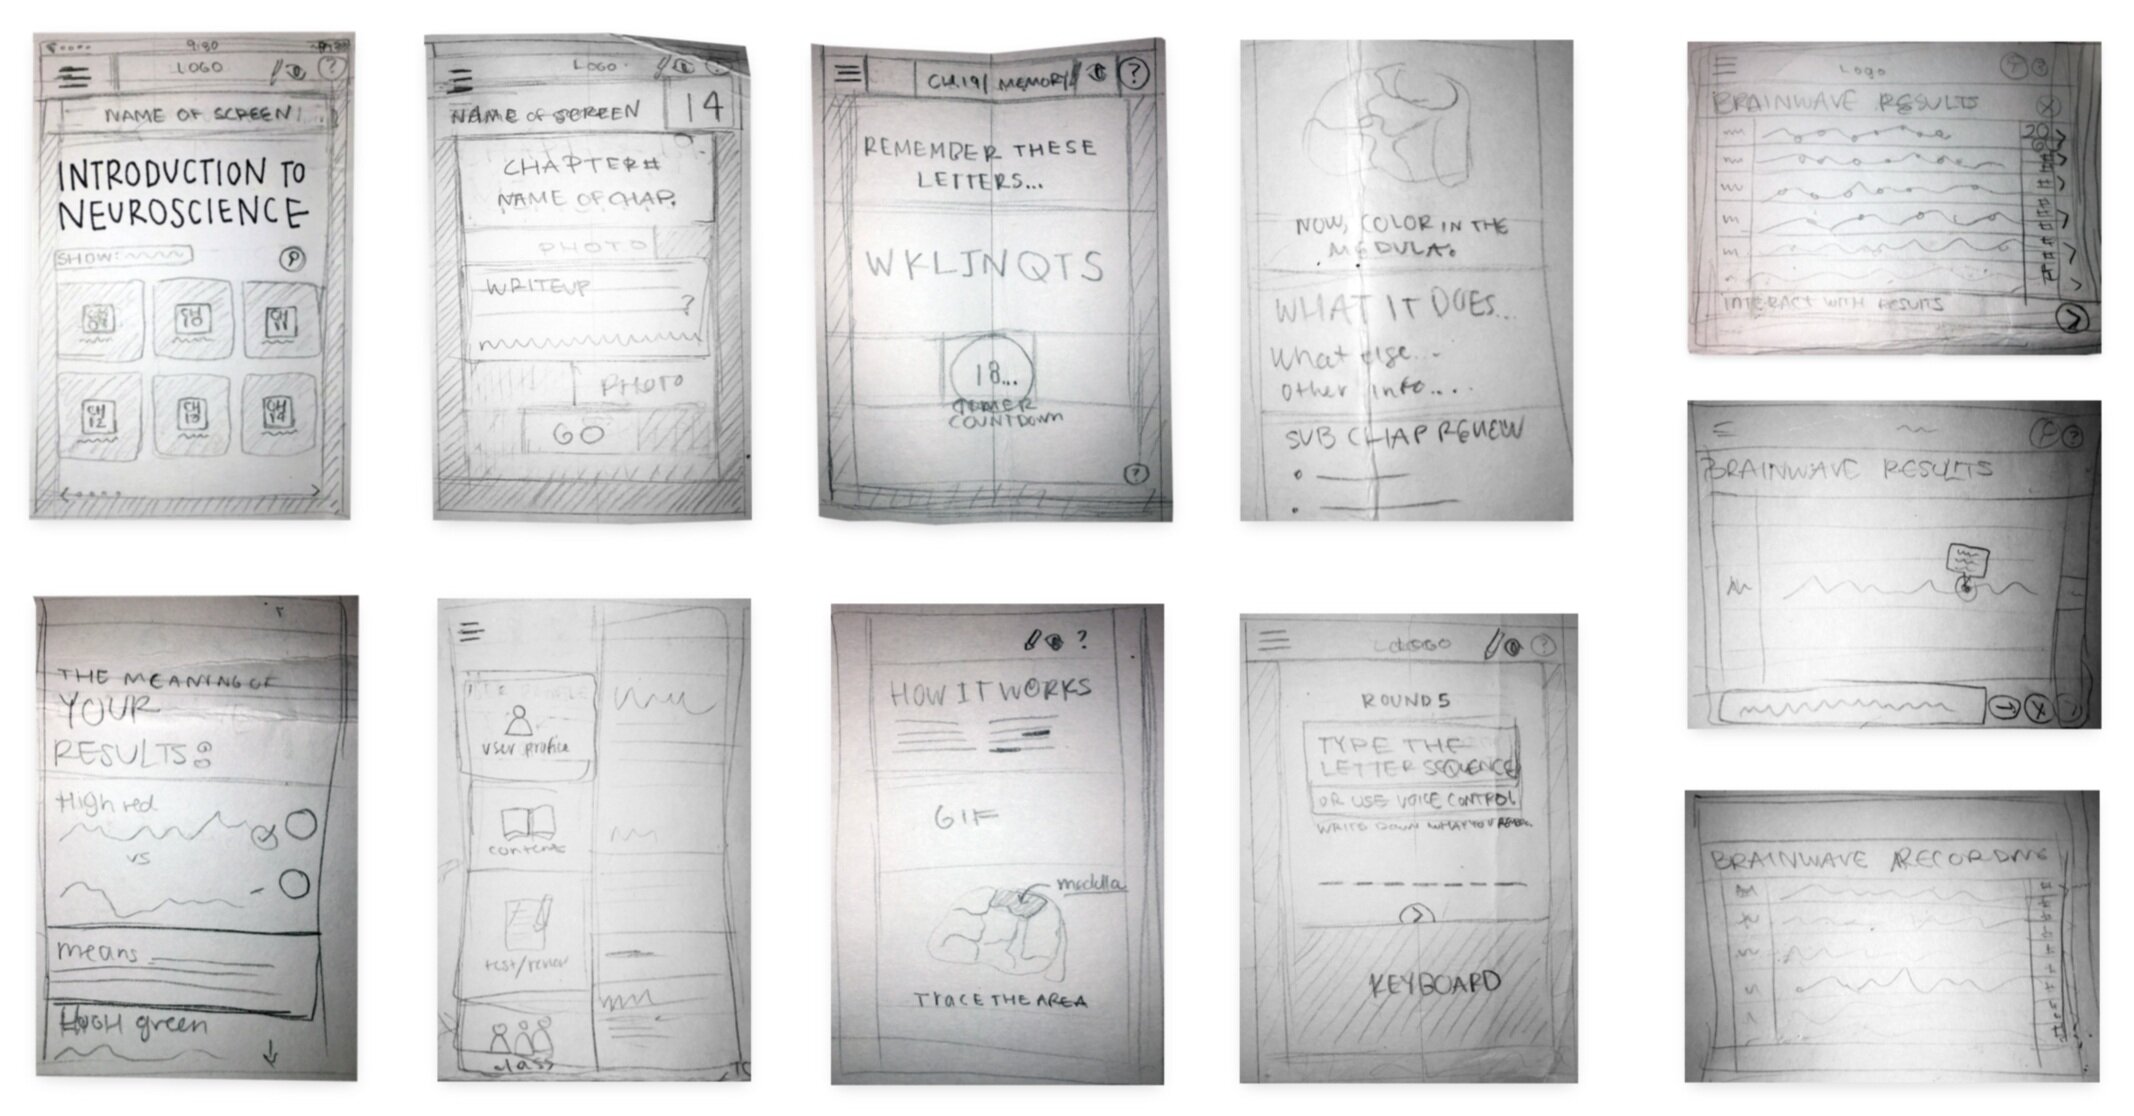 9:30
LOGO
?
NAME OF SCREEN
INTRODUCTION TO
NEUROSCIENCE
SHOW:
CH
10
CH
11
CH
12
CH
13
CH
14
LOGO
NAME OF SCREEN
14
CHAPTER #
NAME OF CHAP.
PHOTO
WRITEUP
?
PHOTO
GO
CH.19/ MEMORY
?
REMEMBER THESE
LETTERS...
WKLJNQTS
18...
TIMER
COUNTDOWN
?
NOW, COLOR IN THE
MEDULA.
WHAT IT DOES...
What else...
other info....
SUB CHAP REVIEW
LOGO
?
BRAINWAVE RESULTS
X
20
INTERACT WITH RESULTS
?
BRAINWAVE RESULTS
X
BRAINWAVE RECORDING
THE MEANING OF
YOUR
RESULTS:
High red
vs
means
HIGH green
user profile
contents
test/review
class
?
HOW IT WORKS
GIF
medulla
TRACE THE AREA
LOGO
?
ROUND 5
TYPE THE
LETTER SEQUENCE
OR USE VOICE CONTROL
WRITE DOWN WHAT YOU
KEYBOARD